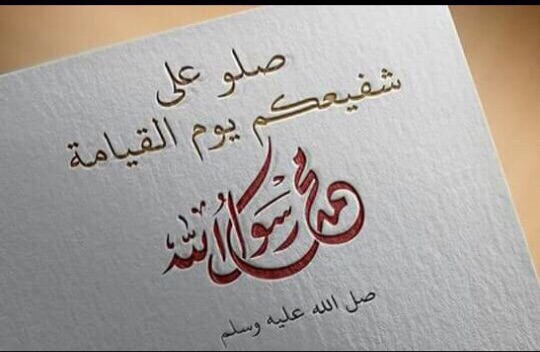 صلو على
شفيعكم يوم القيامة
محمد رسول الله
صل الله عليه وسلم